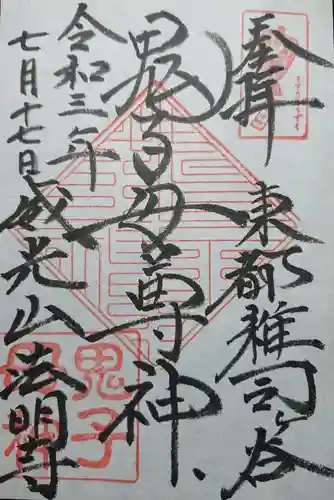 奉拝
東都雑司ヶ谷
鬼子母尊神
令和三年
七月十七日
威光山法明寺
鬼子
母神